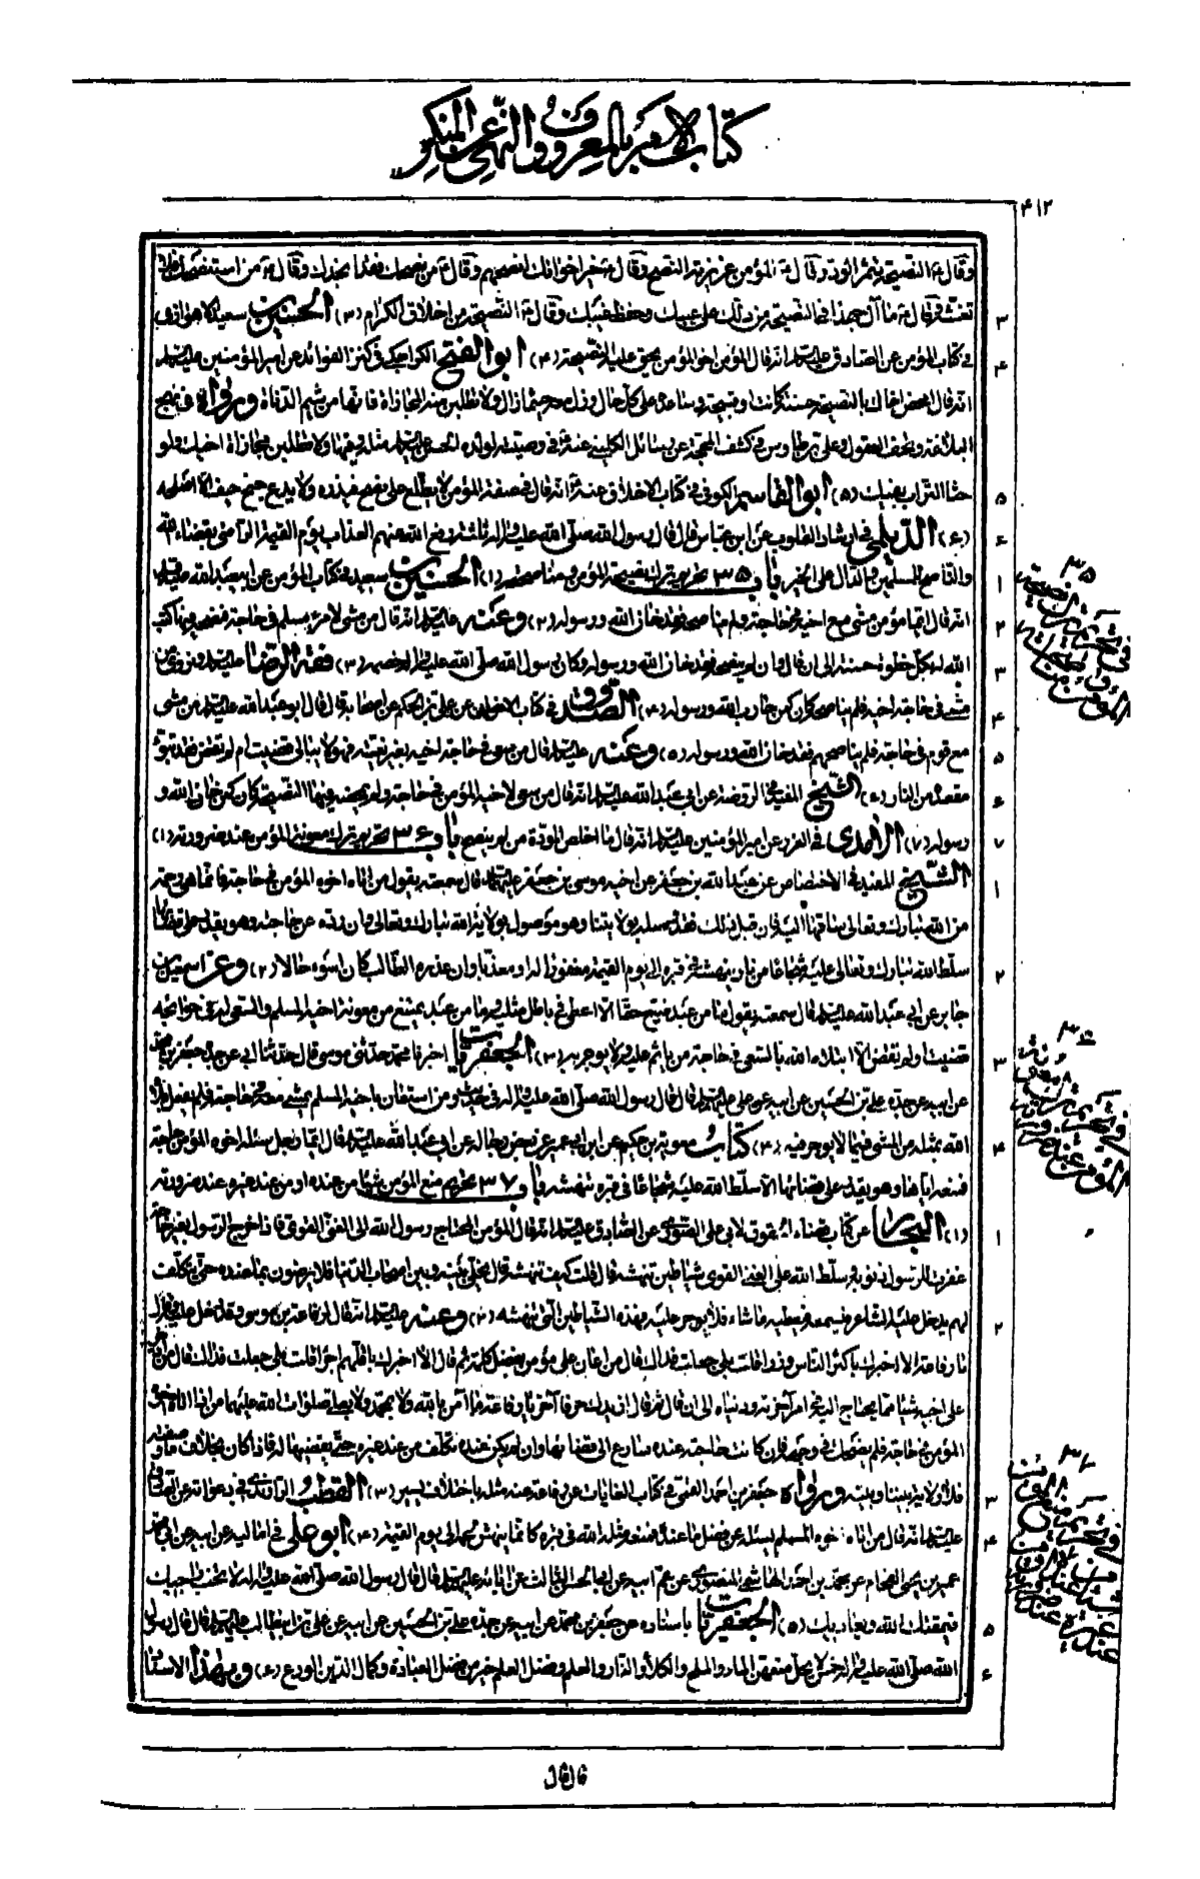 كتاب الامر بالمعروف والنهى عن المنكر
۴۱۲
وقال ع النصيحة يثمر الود وقال ع المؤمن غريزته النصح وقال ع خير اخوانك انصحهم وقال ع من نصحك فقد انجدك وقال ع من استنصحك فلا
تغشه وقال ع ما آل جهدا فى النصيحة من دلك على عيبك وحفظ غيبك وقال ع النصيحة من اخلاق الكرام (۳) الحسين بن سعيد الاهوازى
فى كتاب المؤمن عن الصادق عليه السلم انه قال المؤمن اخو المؤمن يحق عليه النصيحة (۴) ابو الفتح الكراجكى فى كنز الفوائد عن امير المؤمنين عليه السلم
انه قال امحض اخاك بالنصيحة حسنة كانت او قبيحة وساعده على كل حال وزل معه حيثما زال ولا تطلبن منه المجازاة فانها من شيم الدناة ورواه فى نهج
البلاغة وتحف العقول وعلى بن طاوس فى كشف المحجة عن رسائل الكلينى عنه ع فى وصيته لولده الحسن عليه السلم مثله وفيها ولا تطلبن مجازاة اخيك ولو
حثا التراب بفيك (۵) ابو القاسم الكوفى فى كتاب الاخلاق عنه ع انه قال فى صفة المؤمن لا يطلع على نصح فيذره ولا يدع جنح حيف الا اصلحه
(۶) الديلمى فى ارشاد القلوب عن ابن عباس قال قال رسول الله صلى الله عليه واله ثلاثة رفع الله عنهم العذاب يوم القيمة الراضى بقضاء الله
والناصح للمسلمين والدال على الخير باب ۳۵ تحريم ترك نصيحة المؤمن ومناصحته (۱) الحسين بن سعيد فى كتاب المؤمن عن ابى عبد الله عليه السلم
انه قال ايما مؤمن مشى مع اخيه فى حاجة ولم يناصحه فقد خان الله ورسوله (۲) وعنه عليه السلم انه قال من مشى لامرء مسلم فى حاجة فنصحه فيها كتب
الله له بكل خطوة حسنة الى ان قال وان لم ينصحه فقد خان الله ورسوله وكان رسول الله صلى الله عليه واله خصمه (۳) فقه الرضا عليه السلم ونروى من
مشى فى حاجة اخيه فلم يناصحه كان كمن حارب الله ورسوله (۴) الصدوق فى كتاب الاخوان عن على بن الحكم عن اصحابه قال قال ابو عبد الله عليه السلم من مشى
مع قوم فى حاجة فلم يناصحهم فقد خان الله ورسوله (۵) وعنه عليه السلم قال من سعى فى حاجة اخيه بغير نية فهو لا يبالى قضيت ام لم تقض فقد تبوء
مقعده من النار (۶) الشيخ المفيد فى الروضة عن ابى عبد الله عليه السلم انه قال من سعى لاخيه المؤمن فى حاجة ولم يمحضه فيها النصيحة كان كمن خان الله و
رسوله (۷) الآمدى فى الغرر عن امير المؤمنين عليه السلم انه قال ما اخلص المودة من لم ينصح باب ۳۶ تحريم ترك معونة المؤمن عند ضرورته (۱)
الشيخ المفيد فى الاختصاص عن عبد الله بن جعفر عن اخيه موسى بن جعفر عليهما السلم قال سمعته يقول من اتاه اخوه المؤمن فى حاجة فانما هى رحمة
من الله تبارك وتعالى ساقها اليه فان قبل ذلك فقد وصله بولايتنا وهو موصول بولاية الله تبارك وتعالى وان رده عن حاجته وهو يقدر على قضائها
سلط الله تبارك وتعالى عليه شجاعا من نار ينهشه فى قبره الى يوم القيمة مغفورا له او معذبا وان عذره الطالب كان اسوء حالا (۲) وعن اسمعيل بن
جابر عن ابى عبد الله عليه السلم قال سمعته يقول ما من عبد ضيع حقا الا اعطى فى باطل مثليه وما من عبد يمتنع من معونة اخيه المسلم والسعى له فى حوائجه
قضيت او لم تقض الا ابتلاه الله بالسعى فى حاجة من ياثم عليه ولا يوجر به (۳) الجعفريات اخبرنا محمد حدثنى موسى قال حدثنا ابى عن جده جعفر بن محمد
عن ابيه عن جده على بن الحسين عن ابيه عن على عليهم السلم قال قال رسول الله صلى الله عليه واله فى حديث ومن استعان باخيه المسلم يمشى معه فى حاجة فلم يفعل ابتلاه
الله بمثله من المشى فيما لا يوجر فيه (۴) كتاب معوية بن حكيم عن ابن ابى عمير عن بعض رجاله عن ابى عبد الله عليه السلم قال ايما رجل سئله اخوه المؤمن حاجة
فمنعه اياها وهو يقدر على قضائها الا سلط الله عليه شجاعا فى قبره تنهشه باب ۳۷ تحريم منع المؤمن شيئا من عنده او من عند غيره عند ضرورته
(۱) البحار عن كتاب قضاء الحقوق لابى على الصورى عن الصادق عليه السلم انه قال المؤمن المحتاج رسول الله الى الغنى القوى فاذا خرج الرسول بغير حاجته
غفرت للرسول ذنوبه وسلط الله على الغنى القوى شياطين تنهشه قال قلت كيف تنهشه قال يخلى بينه وبين اصحاب الدنيا فلا يرضون بما عنده حتى يتكلف
لهم يدخل عليه الشاعر فيسمعه فيعطيه ما شاء فلا يوجر عليه فهذه الشياطين التى تنهشه (۲) وعنه عليه السلم انه قال لرفاعة بن موسى وقد دخل عليه
يا رفاعة الا اخبرك باكثر الناس وزرا قلت بلى جعلت فداك قال من اعان على مؤمن بفضل كلمة ثم قال الا اخبرك باقلهم اجرا قلت بلى جعلت فداك قال من ادخر
على اخيه شيئا مما يحتاج اليه فى امر آخرته ودنياه الى ان قال ثم قال ازيدك حرفا آخر يا رفاعة ما آمن بالله ولا بمحمد ولا بعلى صلوات الله عليهما من اذا اتاه اخوه
المؤمن فى حاجة فلم يضحك فى وجهه فان كانت حاجته عنده سارع الى قضائها وان لم يكن عنده تكلف من عند غيره حتى يقضيها له فاذا كان بخلاف ما وصفته
فلا ولاية بيننا وبينه ورواه جعفر بن احمد القمى فى كتاب الغايات عن رفاعة عنه مثله باختلاف يسير (۳) القطب الراوندى فى دعواته عن الصادق
عليه السلم انه قال من اتاه اخوه المسلم يسئله عن فضل ما عنده فمنعه مثله الله فى قبره كانما ينهش لحمه الى يوم القيمة (۴) ابو على فى اماليه عن ابيه عن ابى محمد
عن محمد بن احمد الهاشمى المنصورى عن عم ابيه عن ابى الحسن الثالث عن ابائه عليهم السلم قال قال رسول الله صلى الله عليه واله لا تخيب راجيك
فيمقتك الله ويعاديك (۵) الجعفريات باسناده عن جعفر بن محمد عن ابيه عن جده على بن الحسين عن ابيه عن على بن ابيطالب عليهم السلم قال قال رسول
الله صلى الله عليه واله خمس لا يحل منعهن الماء والملح والكلأ والنار والعلم وفضل العلم خير من فضل العبادة وكمال الدين الورع (۶) وبهذا الاسناد
۳۵
فى تحريم ترك نصيحة المؤمن ومناصحته
۳۶
فى تحريم ترك معونة المؤمن عند ضرورته
۳۷
فى تحريم منع المؤمن شيئا من عنده او من عند غيره عند ضرورته
قال قال